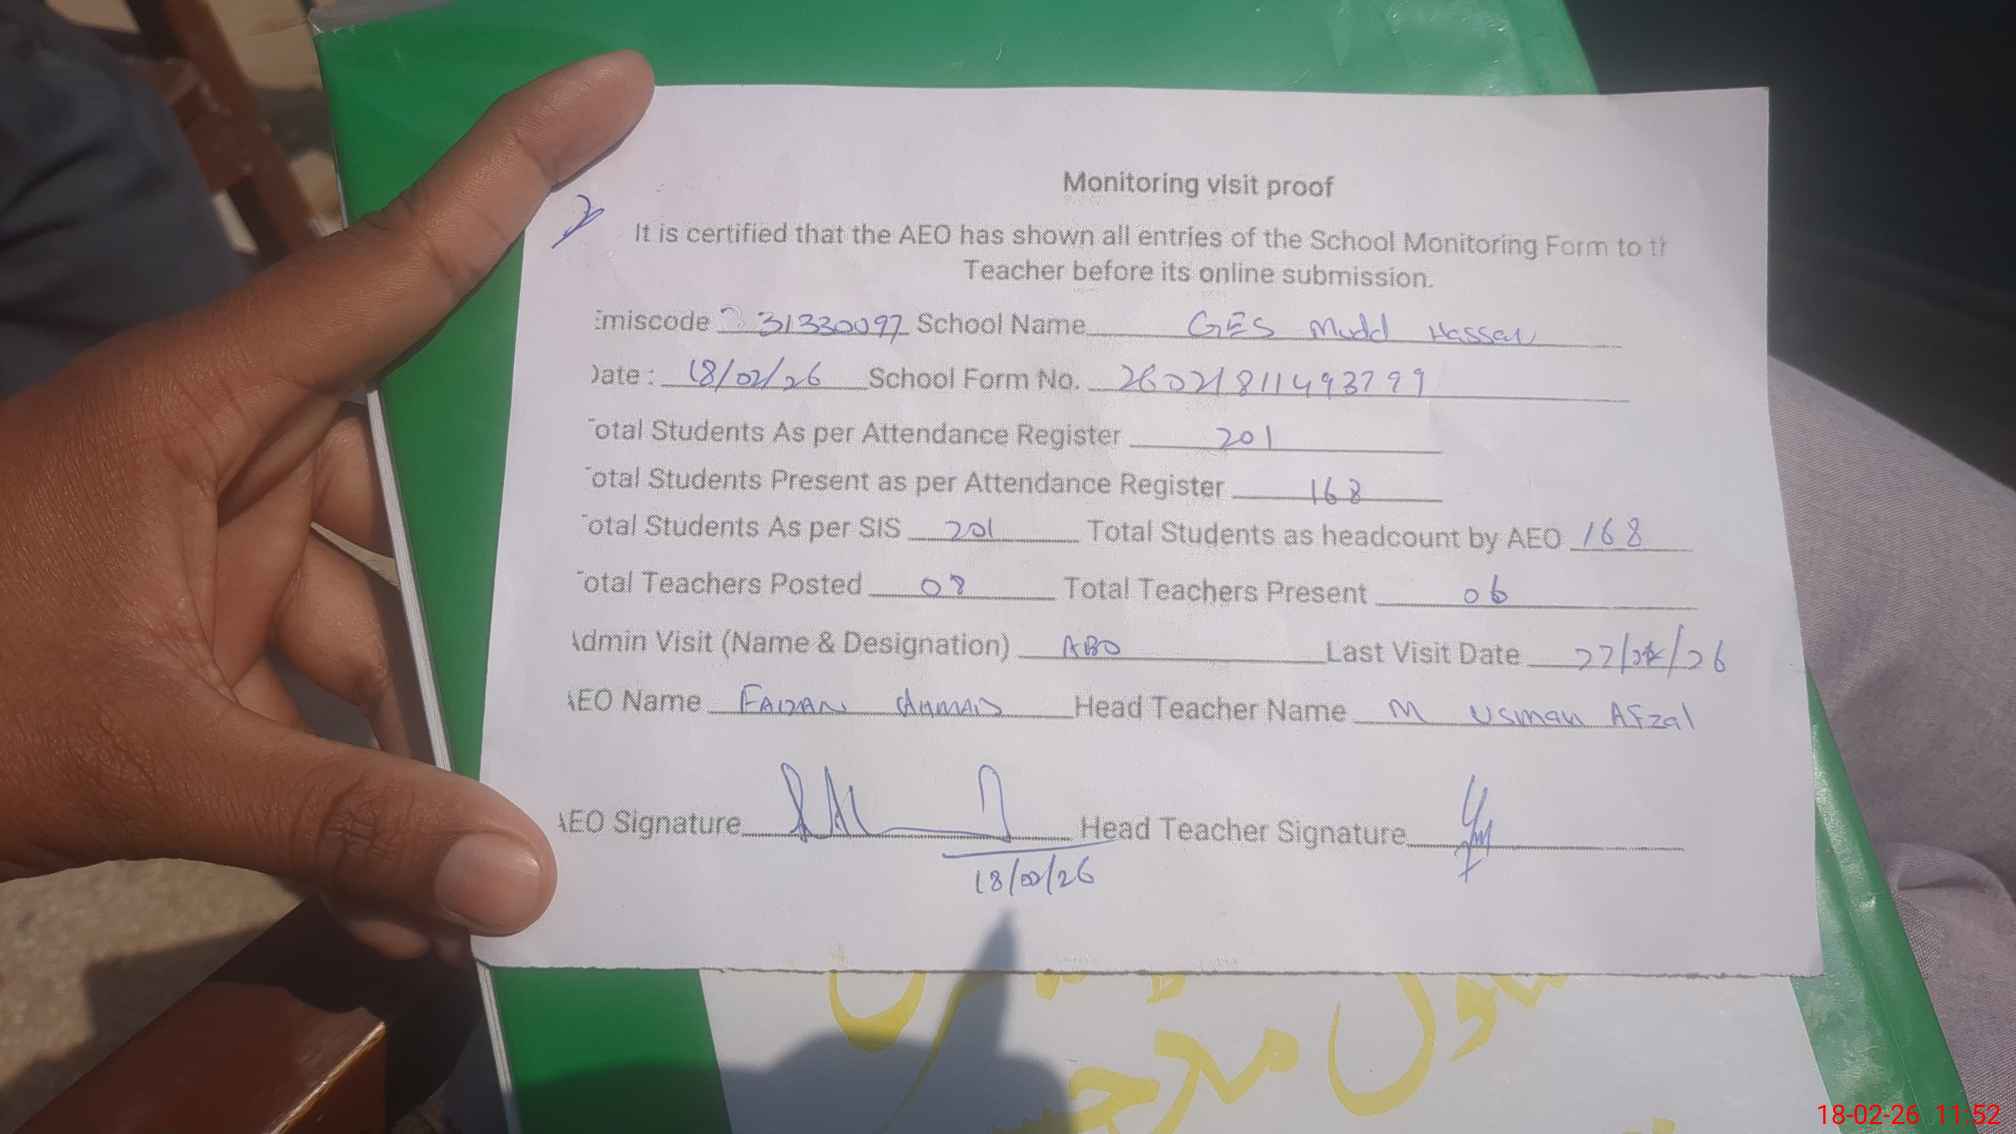 Monitoring visit proof
It is certified that the AEO has shown all entries of the School Monitoring Form to th
Teacher before its online submission.
Emiscode 31330097 School Name GES Mudd Hassan
Date : 18/02/26 School Form No. 26021811493799
Total Students As per Attendance Register 201
Total Students Present as per Attendance Register 168
Total Students As per SIS 201 Total Students as headcount by AEO 168
Total Teachers Posted 08 Total Teachers Present 06
Admin Visit (Name & Designation) Last Visit Date
AEO Name FAIZAN AHMAD Head Teacher Name M Usman Afzal
AEO Signature Head Teacher Signature
18/02/26
مڈ
18-02-26 11:52